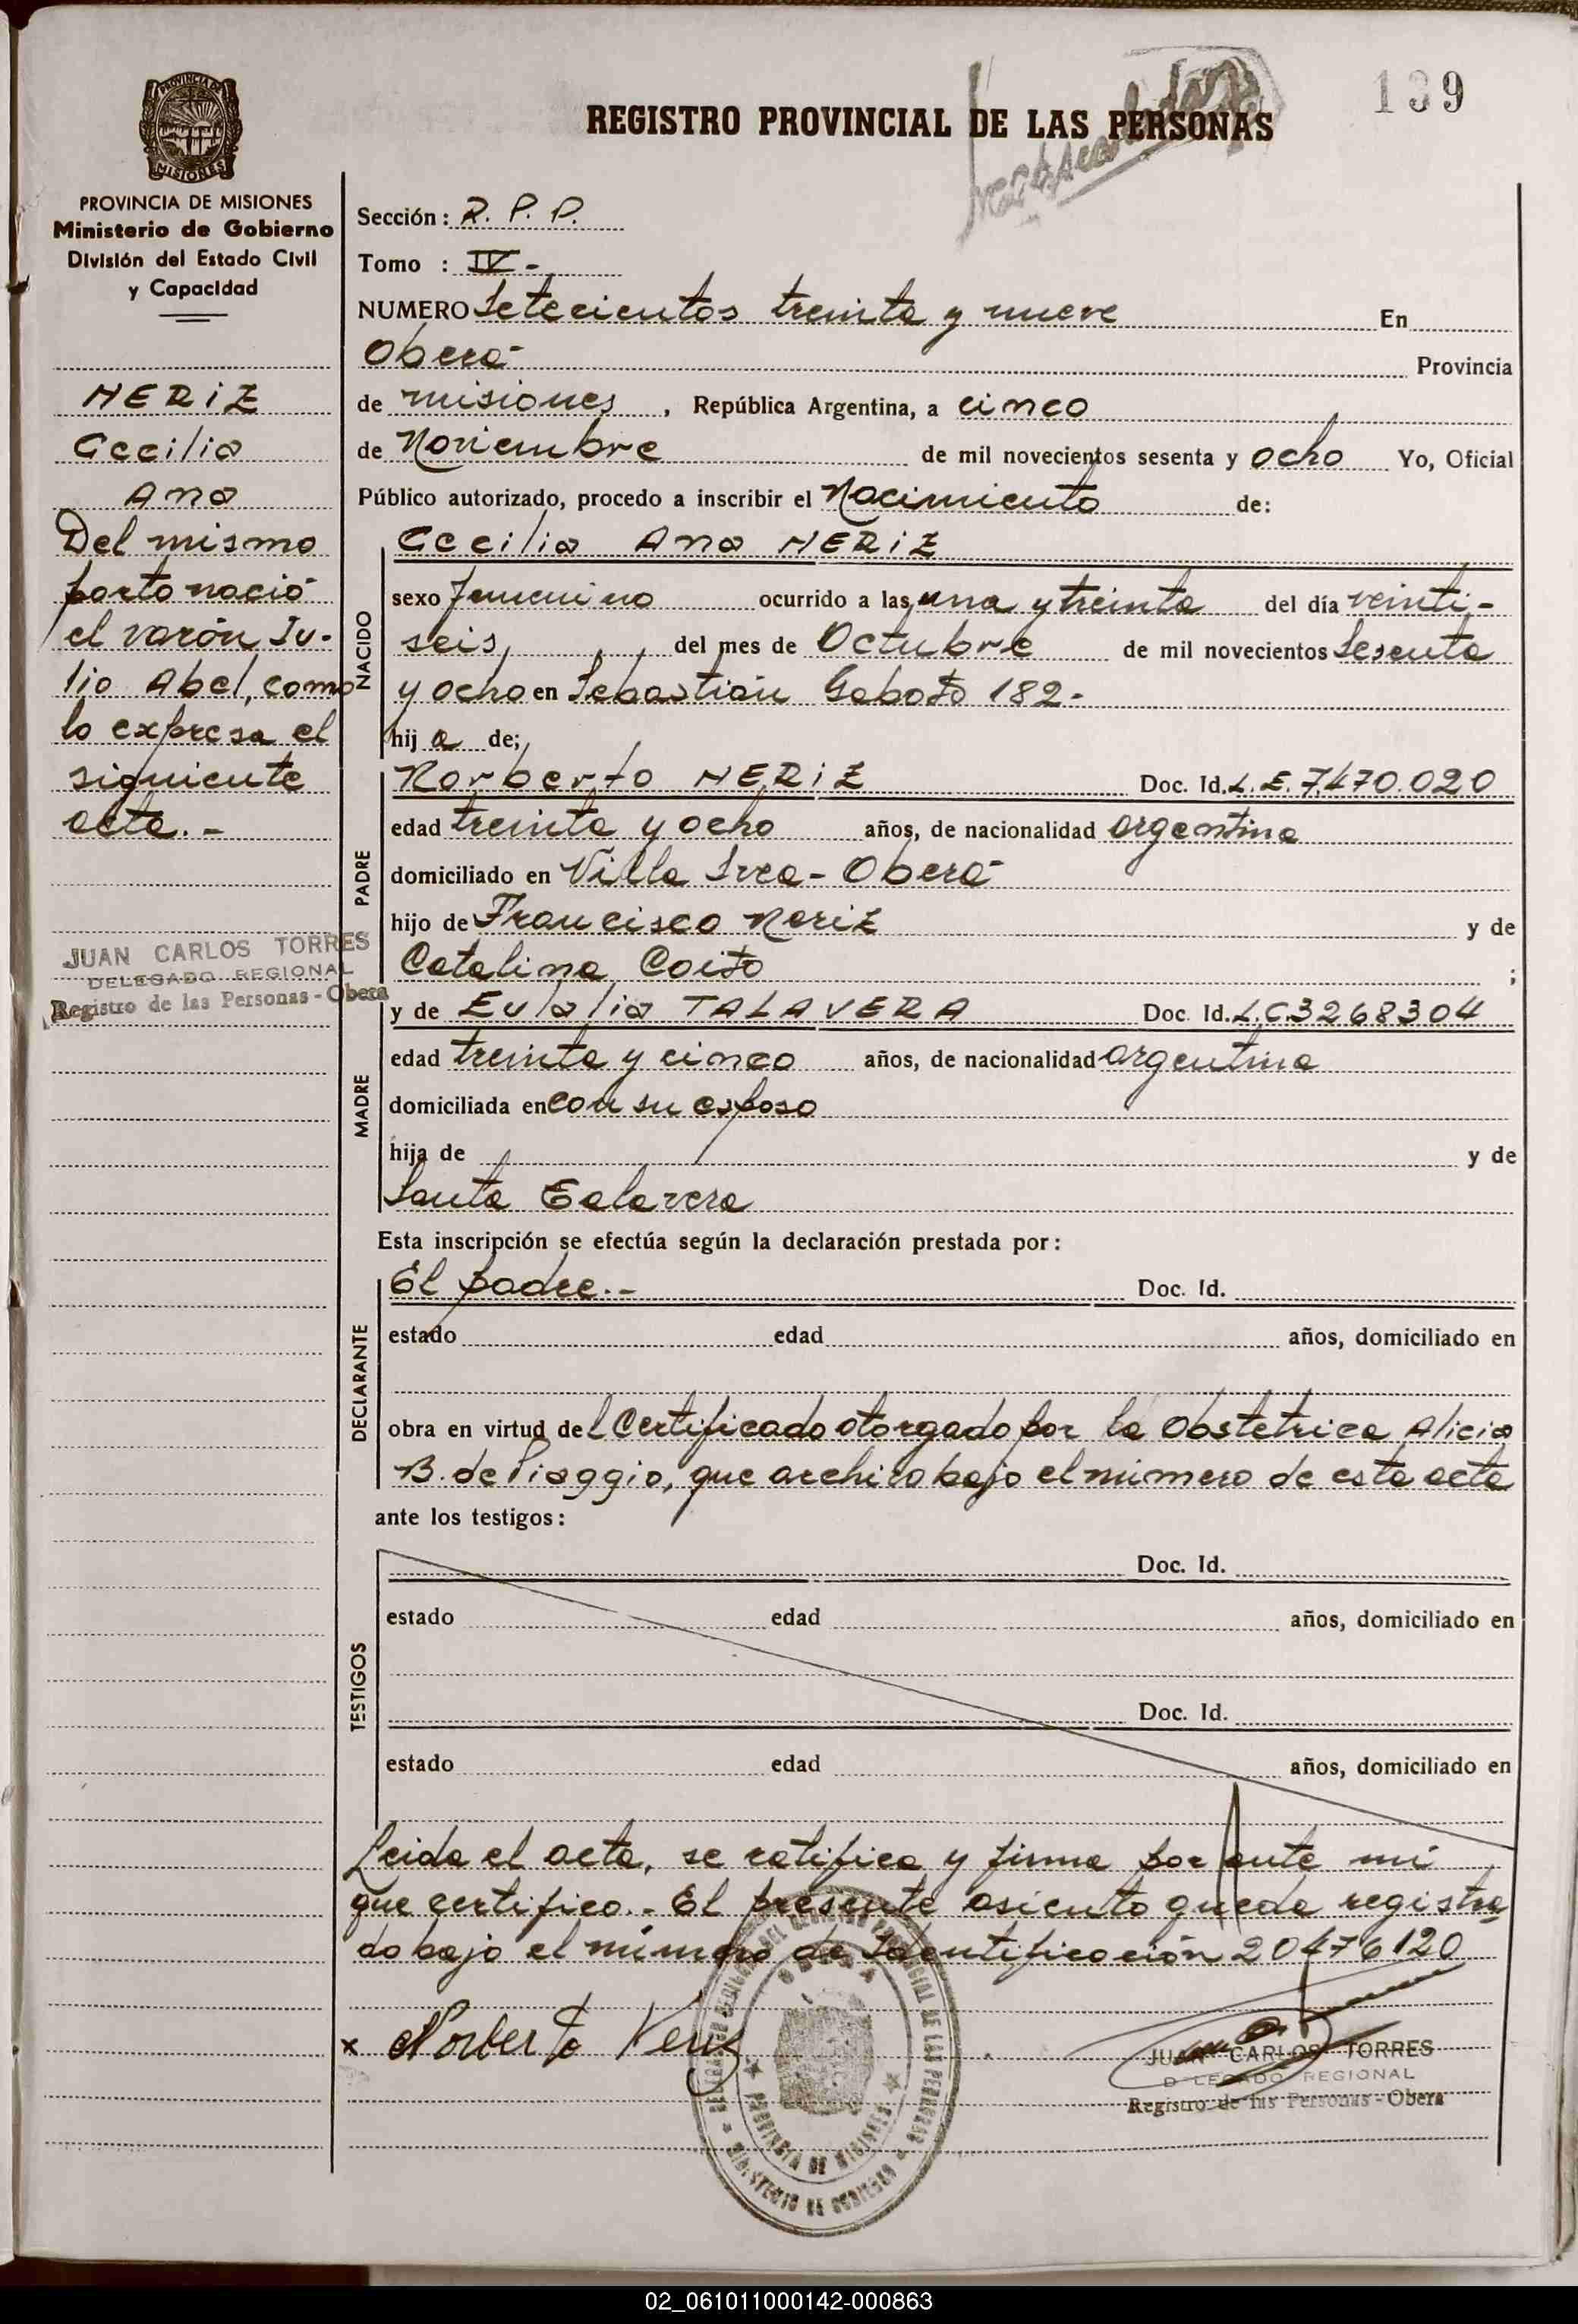 139
REGISTRO PROVINCIAL DE LAS PERSONAS
PROVINCIA DE
MISIONES
PROVINCIA DE MISIONES
Ministerio de Gobierno
División del Estado Civil
y Capacidad
NERIZ
Cecilia
Ana
Del mismo
parto nació
el varón Ju-
lio Abel, como
lo expresa el
siguiente
acta.-
JUAN CARLOS TORRES
DELEGADO REGIONAL
Registro de las Personas - Obera
Sección: R. P. P.
Tomo : IV -
NUMERO Setecientos treinta y nueve En
Oberá Provincia
de misiones, República Argentina, a cinco
de Noviembre de mil novecientos sesenta y ocho Yo, Oficial
Público autorizado, procedo a inscribir el Nacimiento de:
NACIDO
Cecilia Ana NERIZ
sexo femenino ocurrido a las una y treinta del día veinti-
seis, del mes de Octubre de mil novecientos sesenta
y ocho en Sebastián Gaboto 182-
hij a de;
PADRE
Norberto NERIZ Doc. Id. L.E. 7.470.020
edad treinta y ocho años, de nacionalidad argentina
domiciliado en Villa Svea - Oberá
hijo de Francisco Neriz y de
Catalina Coito ;
MADRE
y de Eulalia TALAVERA Doc. Id. L.C. 3268304
edad treinta y cinco años, de nacionalidad argentina
domiciliada en con su esposo
hija de y de
Santa Talavera
Esta inscripción se efectúa según la declaración prestada por:
DECLARANTE
El padre.- Doc. Id.
estado edad años, domiciliado en
obra en virtud del Certificado otorgado por la Obstetrica Alicia
B. de Piaggio, que archivo bajo el número de esta acta
ante los testigos:
TESTIGOS
Doc. Id.
estado edad años, domiciliado en
Doc. Id.
estado edad años, domiciliado en
Leida el acta, se ratifica y firma por ante mi
que certifico.- El presente asiento queda registra
do bajo el número de Identificación 20476120
x Norberto Neriz
JUAN CARLOS TORRES
DELEGADO REGIONAL
Registro de las Personas - Obera
OBERA
PROVINCIA DE MISIONES
MINISTERIO DE GOBIERNO
02_061011000142-000863